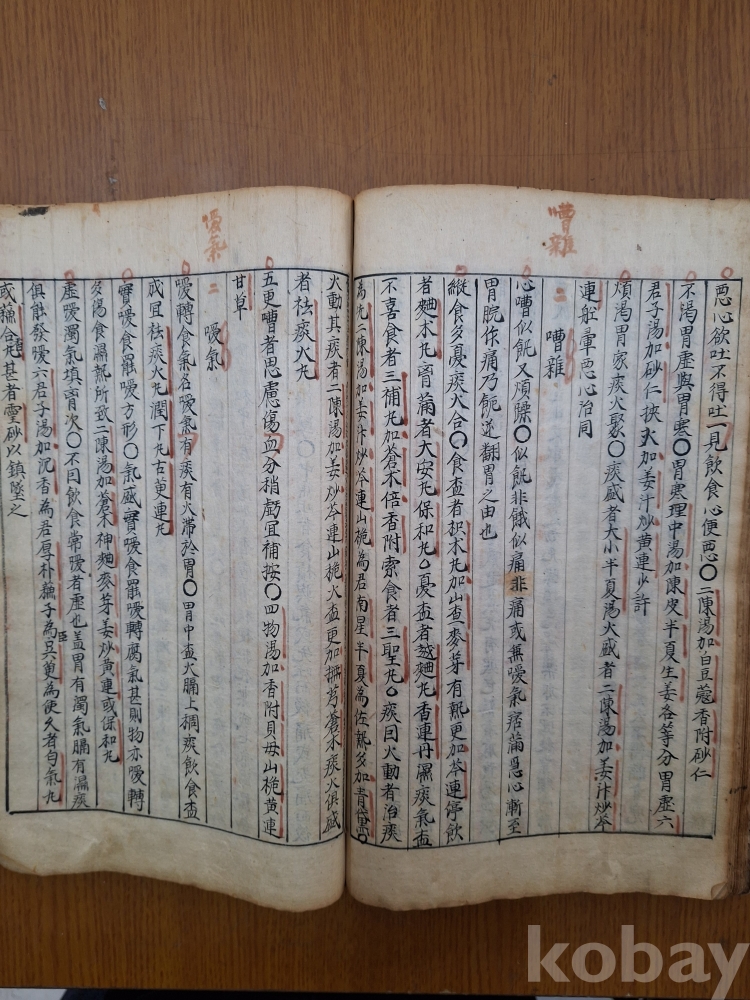 嘈雜
惡心欲吐不得吐一見飲食心便惡〇二陳湯加白豆蔻香附砂仁
不渴胃虛與胃寒〇胃寒理中湯加陳皮半夏生姜各等分胃虛六
君子湯加砂仁挾火加姜汁炒黃連少許
煩渴胃家痰火聚〇痰盛者大小半夏湯火盛者二陳湯加姜汁炒芩
連舡暈惡心治同
二 嘈雜
心嘈似飢又煩燥〇似飢非餓似痛非痛或無噯氣痞滿惡心漸至
胃脘作痛乃飜胃之由也
縱食多憂痰火合〇食盃者枳朮丸加山查麥芽有熱更加芩連停飲
者麯朮丸胷滿者大安丸保和丸〇憂盃者越麯丸香連丹濕痰氣盃
不喜食者三補丸加蒼朮倍香附索食者三聖丸〇痰因火動者治痰
為先二陳湯加姜汁炒芩連山梔為君南星半夏為佐熱多加青黛〇
噯氣
火動其痰者二陳湯加姜炒芩連山梔火盃更加撫芎蒼朮痰火俱盛
者祛痰火丸
五更嘈者思慮傷血分稍虧宜補按〇四物湯加香附貝母山梔黃連
甘草
二 噯氣
噯轉食氣名噯氣有痰有火滯於胃〇胃中盃火膈上稠痰飲食盃
成宜祛痰火丸潤下丸古萸連丸
實噯食罷噯方形〇氣盛實噯食罷噯轉腐氣甚則物亦噯轉
多傷食濕熱所致二陳湯加蒼朮神麯麥芽姜炒黃連或保和丸
虛噯濁氣填胷次〇不因飲食常噯者虛也盖胃有濁氣膈有濕痰
俱能發噯六君子湯加沉香為君厚朴蘇子為臣吳萸為使久者白氣丸
或蘇合丸甚者霊砂以鎮墜之
kobay